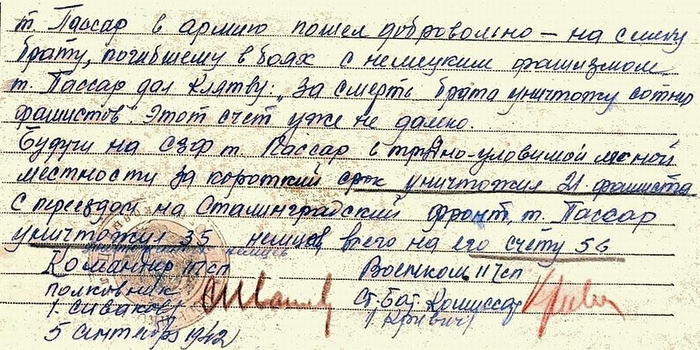 т. Пассар в армию пошел добровольно — на смену
брату, погибшему в боях с немецким фашизмом.
т. Пассар дал клятву: „За смерть брата уничтожу сотни
фашистов". Этот счет уже не далеко.
Будучи на СЗФ т. Пассар в трудно-уловимой лесной
местности за короткий срок уничтожил 21 фашиста
с переездом на Сталинградский фронт, т. Пассар
уничтожил 35 немцев, всего на его счету 56
Командир 117сп Военком 117сп
полковник Ст. Бат. Комиссар
/Сиваков/ /Кривич/
5 сентября 1942